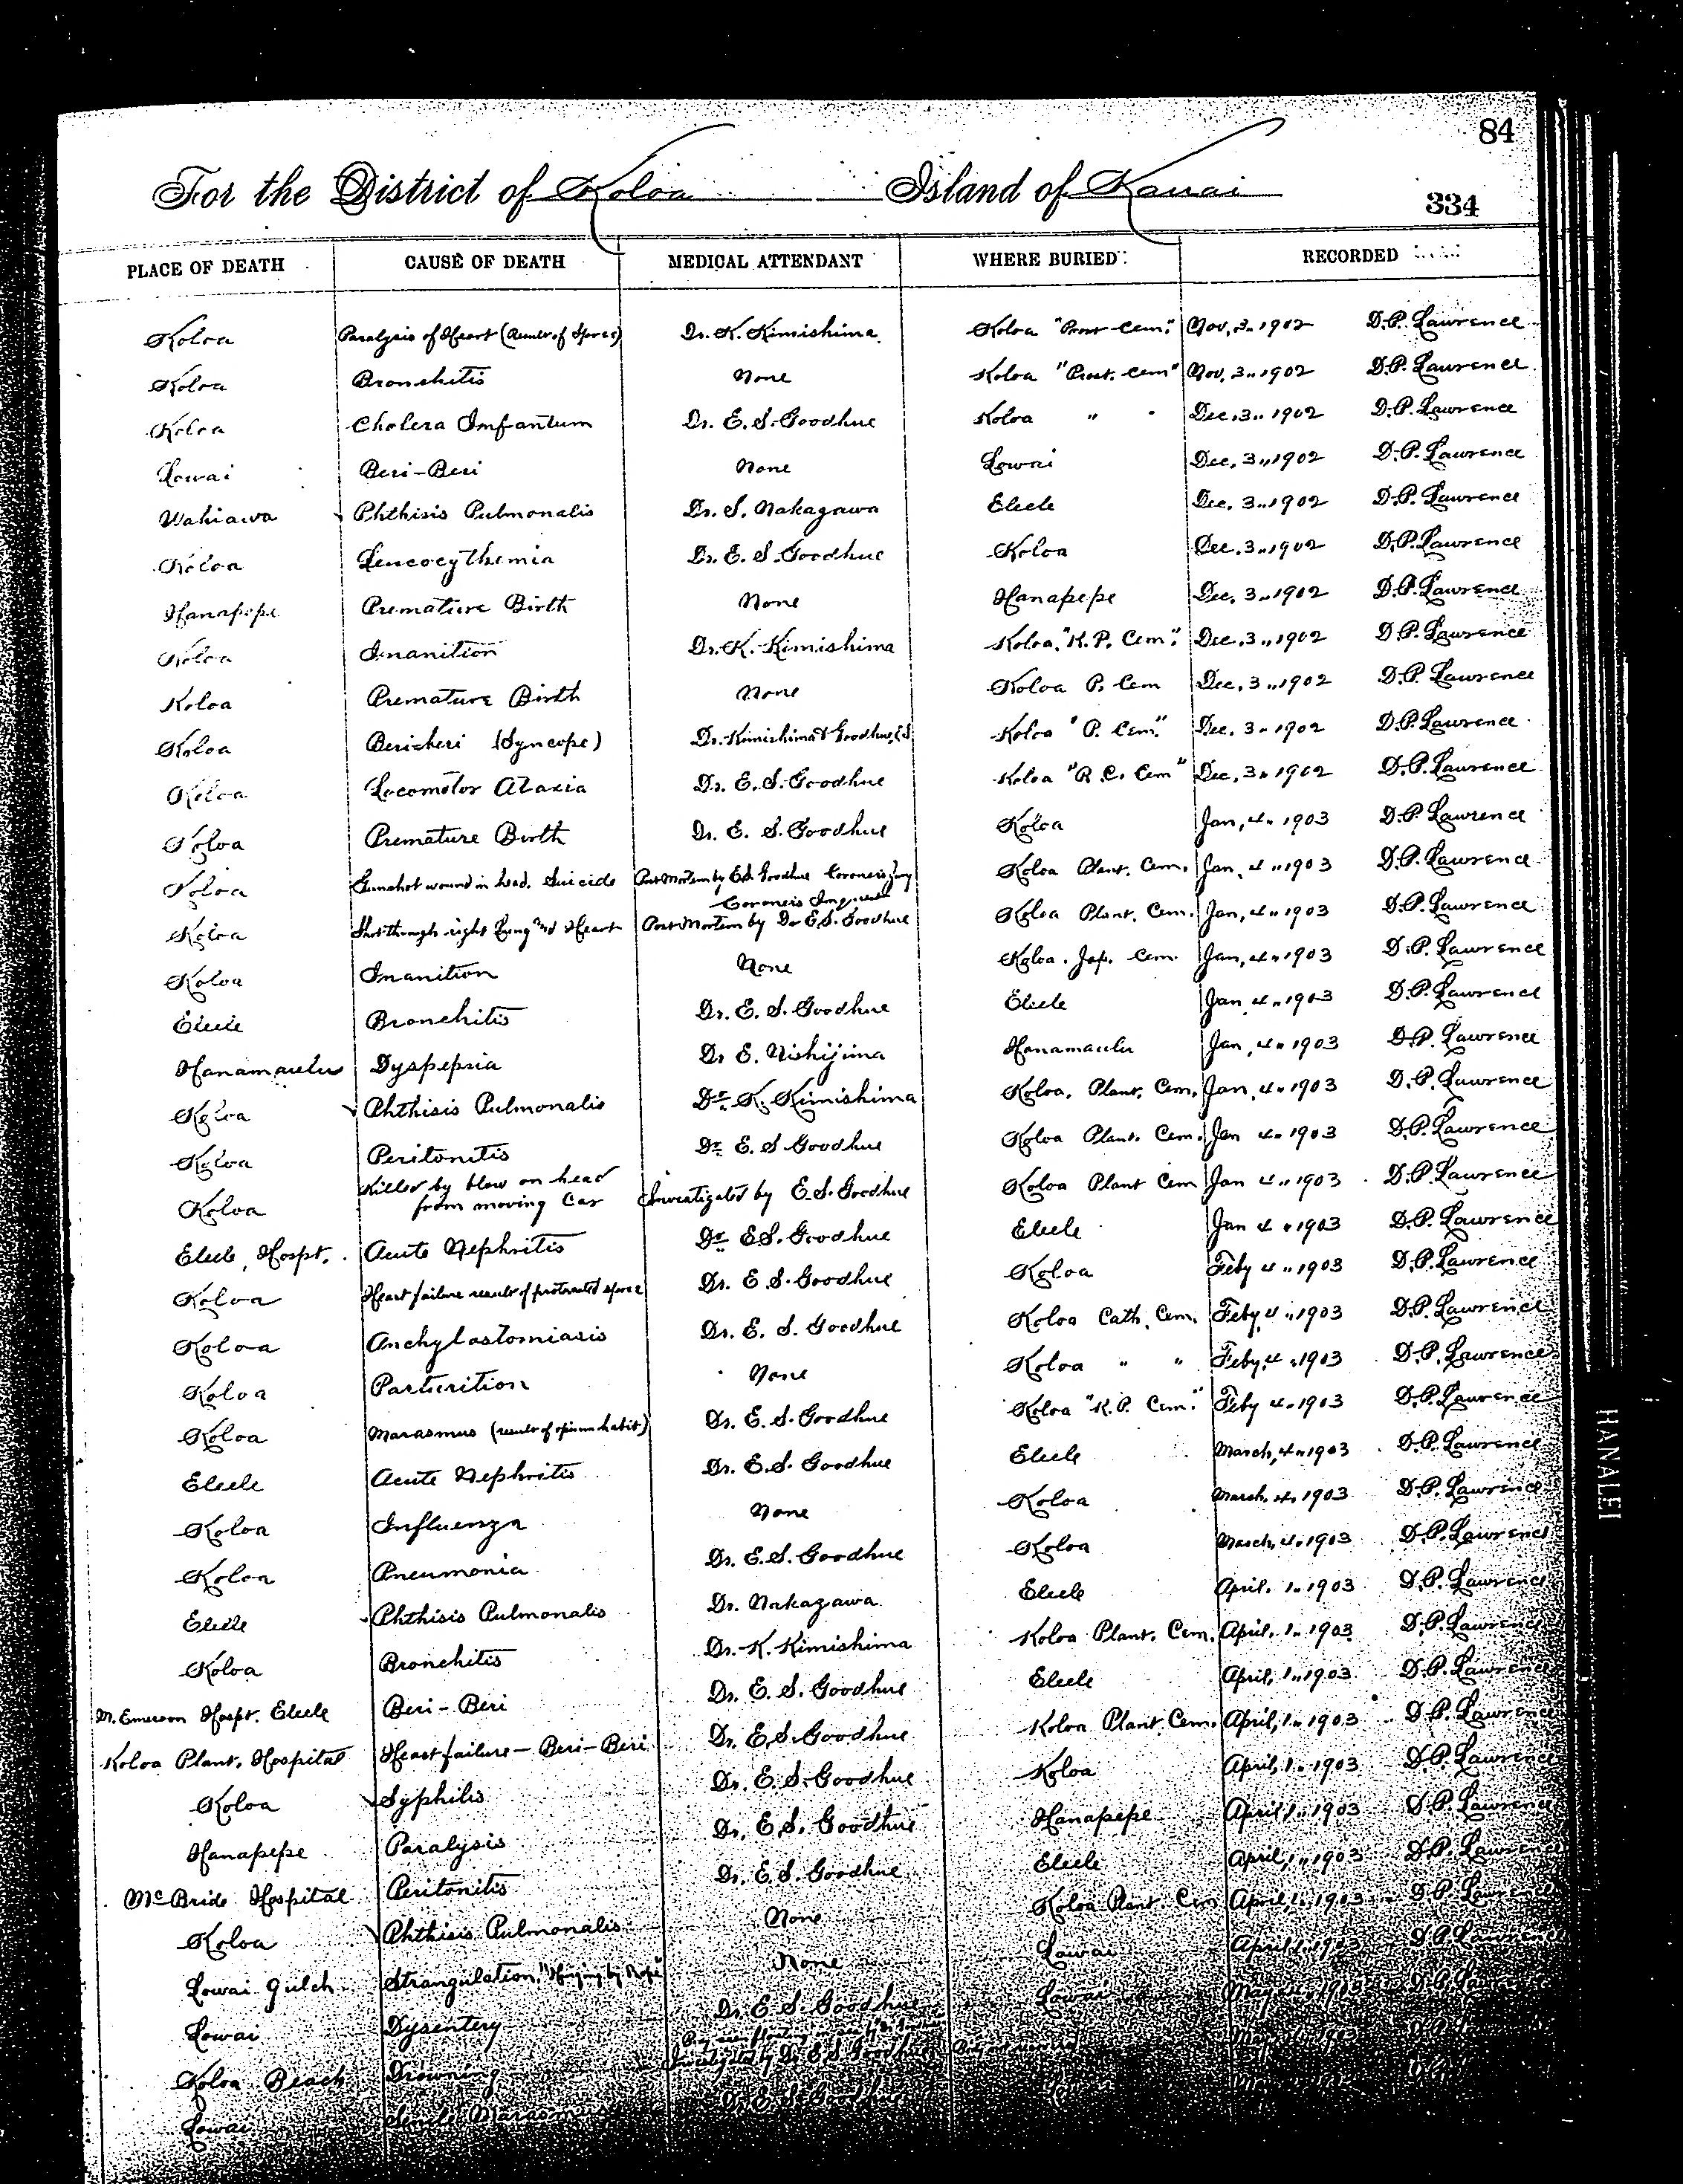 84
For the District of Koloa Island of Kauai
334
PLACE OF DEATH CAUSE OF DEATH MEDICAL ATTENDANT WHERE BURIED RECORDED
Koloa Paralysis of Heart (Result of Spree) Dr. K. Kimishima Koloa "Prot. Cem." Nov. 3" 1902 D.P. Lawrence
Koloa Bronchitis None Koloa "Prot. Cem" Nov. 3" 1902 D.P. Lawrence
Koloa Cholera Infantum Dr. E. S. Goodhue Koloa " " Dec. 3" 1902 D.P. Lawrence
Lawai Beri-Beri None Lawai Dec. 3" 1902 D.P. Lawrence
Wahiawa Phthisis Pulmonalis Dr. S. Nakagawa Eleele Dec. 3" 1902 D.P. Lawrence
Koloa Leucocythemia Dr. E. S. Goodhue Koloa Dec. 3" 1902 D.P. Lawrence
Hanapepe Premature Birth None Hanapepe Dec. 3" 1902 D.P. Lawrence
Koloa Inanition Dr. K. Kimishima Koloa "K. P. Cem". Dec. 3" 1902 D.P. Lawrence
Koloa Premature Birth None Koloa P. Cem Dec. 3" 1902 D.P. Lawrence
Koloa Beri-beri (Syncope) Dr. Kimishima & Goodhue, E.S. Koloa "P. Cem." Dec. 3" 1902 D.P. Lawrence
Koloa Locomotor Ataxia Dr. E. S. Goodhue Koloa "R. C. Cem" Dec. 3" 1902 D.P. Lawrence
Koloa Premature Birth Dr. E. S. Goodhue Koloa Jan, 4" 1903 D.P. Lawrence
Koloa Gunshot wound in head. Suicide Post Mortem by E.S. Goodhue Coroner's Jury Koloa Plant. Cem. Jan, 4" 1903 D.P. Lawrence
Coroner's Inquest
Koloa Shot through right Lung and Heart Post Mortem by Dr E.S. Goodhue Koloa Plant. Cem. Jan, 4" 1903 D.P. Lawrence
Koloa Inanition None Koloa. Jap. Cem. Jan, 4" 1903 D.P. Lawrence
Eleele Bronchitis Dr. E. S. Goodhue Eleele Jan 4" 1903 D.P. Lawrence
Hanamaulu Dyspepsia Dr E. Nishijima Hanamaulu Jan, 4" 1903 D.P. Lawrence
Koloa Phthisis Pulmonalis Dr. K. Kimishima Koloa. Plant. Cem. Jan, 4" 1903 D.P. Lawrence
Koloa Peritonitis Dr. E. S Goodhue Koloa Plant. Cem. Jan 4" 1903 D.P. Lawrence
Koloa Killed by blow on head Investigated by E.S. Goodhue Koloa Plant Cem Jan 4" 1903 D.P. Lawrence
from moving Car
Eleele, Hospt. Acute Nephritis Dr. E.S. Goodhue Eleele Jan 4" 1903 D.P. Lawrence
Koloa Heart failure result of protracted spree Dr. E. S. Goodhue Koloa Feby 4" 1903 D.P. Lawrence
Koloa Anchylostomiasis Dr. E. S. Goodhue Koloa Cath. Cem. Feby, 4" 1903 D.P. Lawrence
Koloa Parturition None Koloa " " Feby. 4" 1903 D.P. Lawrence
Koloa Marasmus (result of opium habit) Dr. E. S. Goodhue Koloa "K. P. Cem." Feby 4" 1903 D.P. Lawrence
Eleele Acute Nephritis Dr. E.S. Goodhue Eleele March, 4" 1903 D.P. Lawrence
Koloa Influenza None Koloa March. 4" 1903 D.P. Lawrence
Koloa Pneumonia Dr. E.S. Goodhue Koloa March, 4" 1903 D.P. Lawrence
Eleele Phthisis Pulmonalis Dr. Nakagawa Eleele April. 1" 1903 D.P. Lawrence
Koloa Bronchitis Dr. K. Kimishima Koloa Plant. Cem. April, 1" 1903 D.P. Lawrence
M. Emerson Hospt. Eleele Beri-Beri Dr. E. S. Goodhue Eleele April, 1" 1903 D.P. Lawrence
Koloa Plant. Hospital Heart failure - Beri-Beri Dr. E. S. Goodhue Koloa Plant. Cem. April, 1" 1903 D.P. Lawrence
Koloa Syphilis Dr. E. S. Goodhue Koloa April, 1" 1903 D.P. Lawrence
Hanapepe Paralysis Dr. E. S. Goodhue Hanapepe April 1" 1903 D.P. Lawrence
McBride Hospital Peritonitis Dr. E. S. Goodhue Eleele April, 1" 1903 D.P. Lawrence
Koloa Phthisis Pulmonalis None Koloa Plant. Cem April, 1" 1903 D.P. Lawrence
Lawai Gulch Strangulation. "Hanging by Rope" None Lawai April 1" 1903 D.P. Lawrence
Lawai Dysentery Dr. E. S. Goodhue Lawai May 1903
Koloa Beach Drowning Investigated by Dr. E. S. Goodhue
Lawai Senile Marasmus Dr. E. S. Goodhue
HANALEI